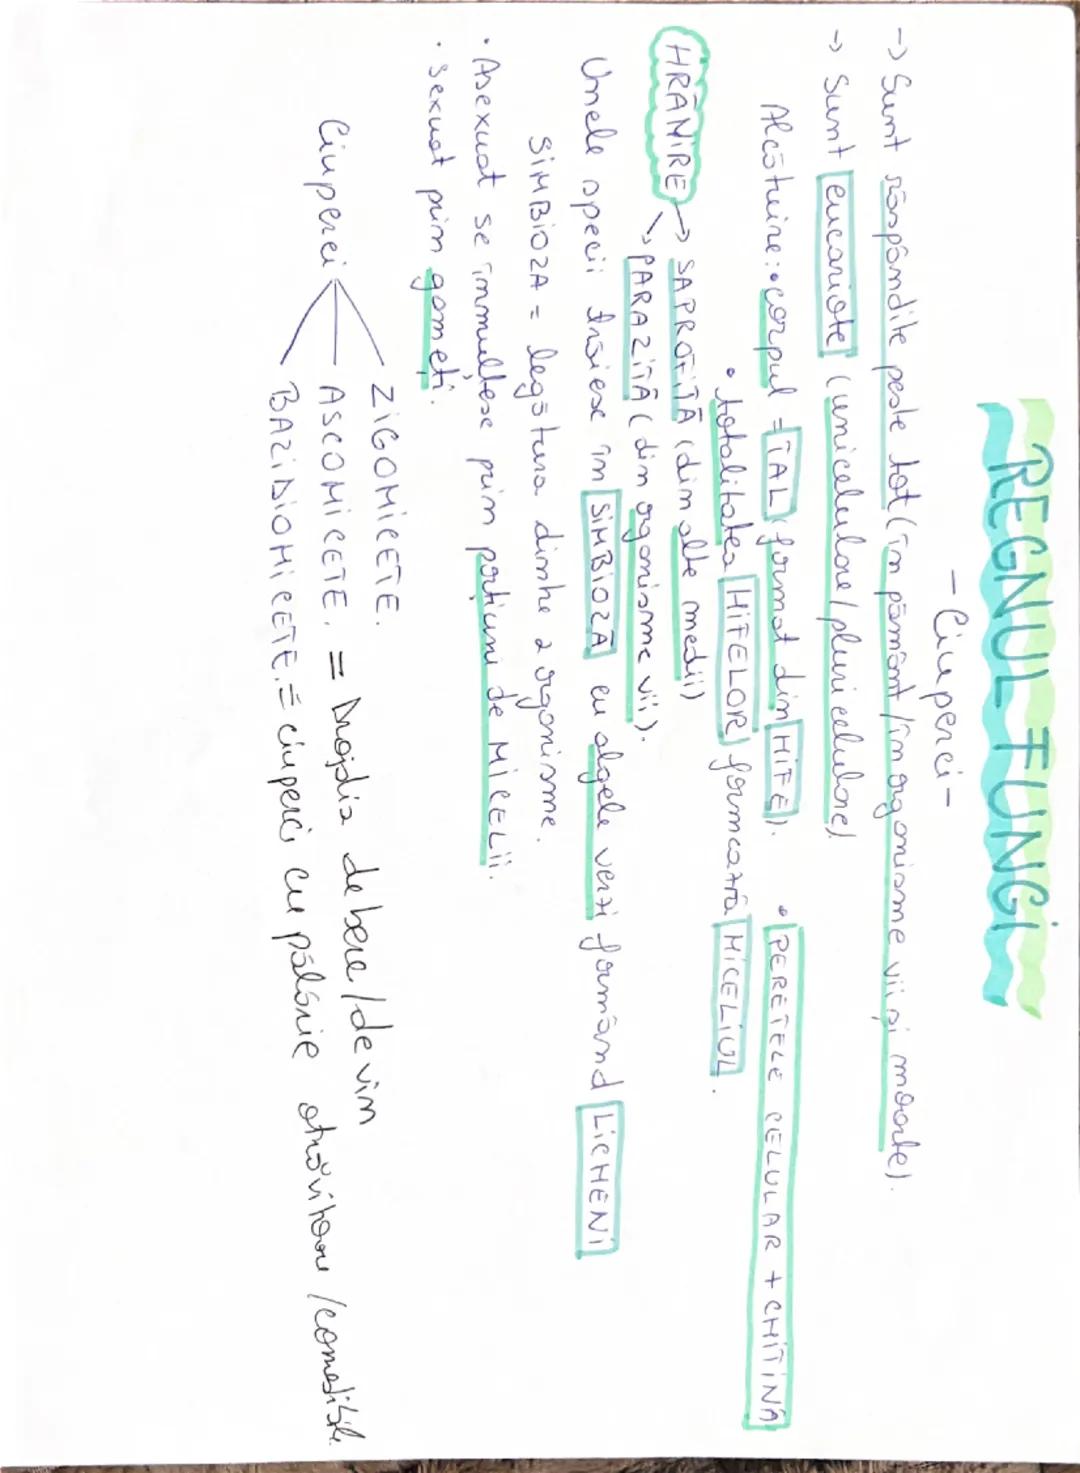 REGNUL FUNGI
- Ciuperci -
-> Sunt răspândite peste tot (în pământ / în organisme vii și moarte).
-> Sunt eucariote (unicelulare / pluricelulare)
Alcătuire: • corpul = TAL (format din HIFE). • PERETELE CELULAR + CHITINĂ
• totalitatea HIFELOR formează MICELIUL.
HRĂNIRE -> SAPROFITĂ (din alte medii)
-> PARAZITĂ (din organisme vii).
Unele specii trăiesc în SIMBIOZĂ cu algele verzi formând LICHENI
SIMBIOZA = legătura dintre 2 organisme.
• Asexuat se înmulțesc prin porțiuni de MICELII.
• Sexuat prin gameți.
Ciuperci
ZIGOMICETE.
ASCOMICETE. = Drojdia de bere / de vin
BAZIDIOMICETE. = ciuperci cu pălărie otrăvitoare / comestibile